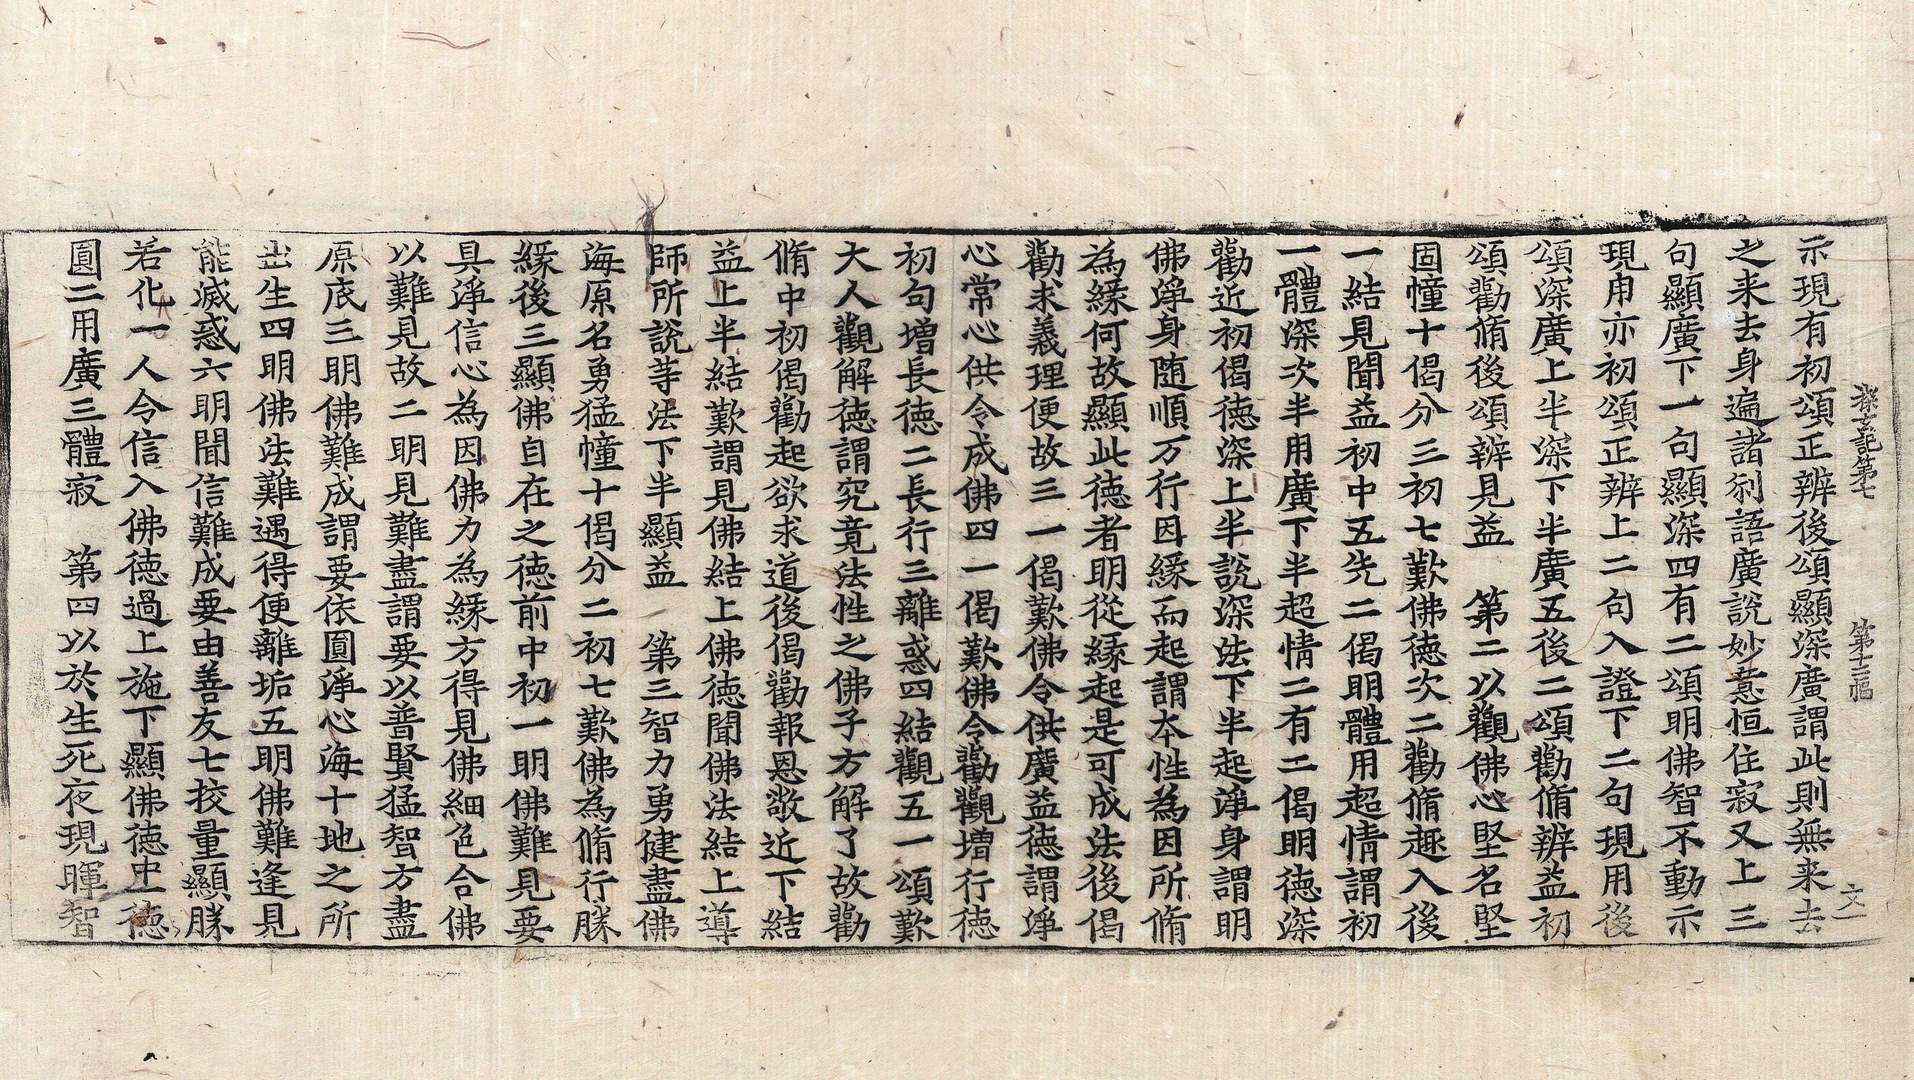 探玄記第七 第十二幅 文一
示現有初頌正辨後頌顯深廣謂此則無来去
之来去身遍諸刹語廣說妙慧恒住寂又上三
句顯廣下一句顯深四有二頌明佛智不動示
現用亦初頌正辨上二句入證下二句現用後
頌深廣上半深下半廣五後二頌勸脩辨益初
頌勸脩後頌辨見益 第二以觀佛心堅名堅
固幢十偈分三初七歎佛德次二勸脩趣入後
一結見聞益初中五先二偈明體用超情謂初
一體深次半用廣下半超情二有二偈明德深
勸近初偈德深上半說深法下半起淨身謂明
佛淨身随順万行因緣而起謂本性為因所脩
為緣何故顯此德者明從緣起是可成法後偈
勸求義理便故三一偈歎佛令供廣益德謂淨
心常心供令成佛四一偈歎佛令勸觀増行德
初句増長德二長行三離惑四結觀五一頌歎
大人觀解德謂究竟法性之佛子方解了故勸
脩中初偈勸起欲求道後偈勸報恩敬近下結
益上半結歎謂見佛結上佛德聞佛法結上導
師所說等法下半顯益 第三智力勇健盡佛
海原名勇猛幢十偈分二初七歎佛為脩行勝
緣後三顯佛自在之德前中初一明佛難見要
具淨信心為因佛力為緣方得見佛細色合佛
以難見故二明見難盡謂要以普賢猛智方盡
原底三明佛難成謂要依圓淨心海十地之所
出生四明佛法難遇得便離垢五明佛難逢見
能滅惑六明聞信難成要由善友七挍量顯勝
若化一人令信入佛德過上施下顯佛德中一德
圓二用廣三體寂 第四以於生死夜現暉智